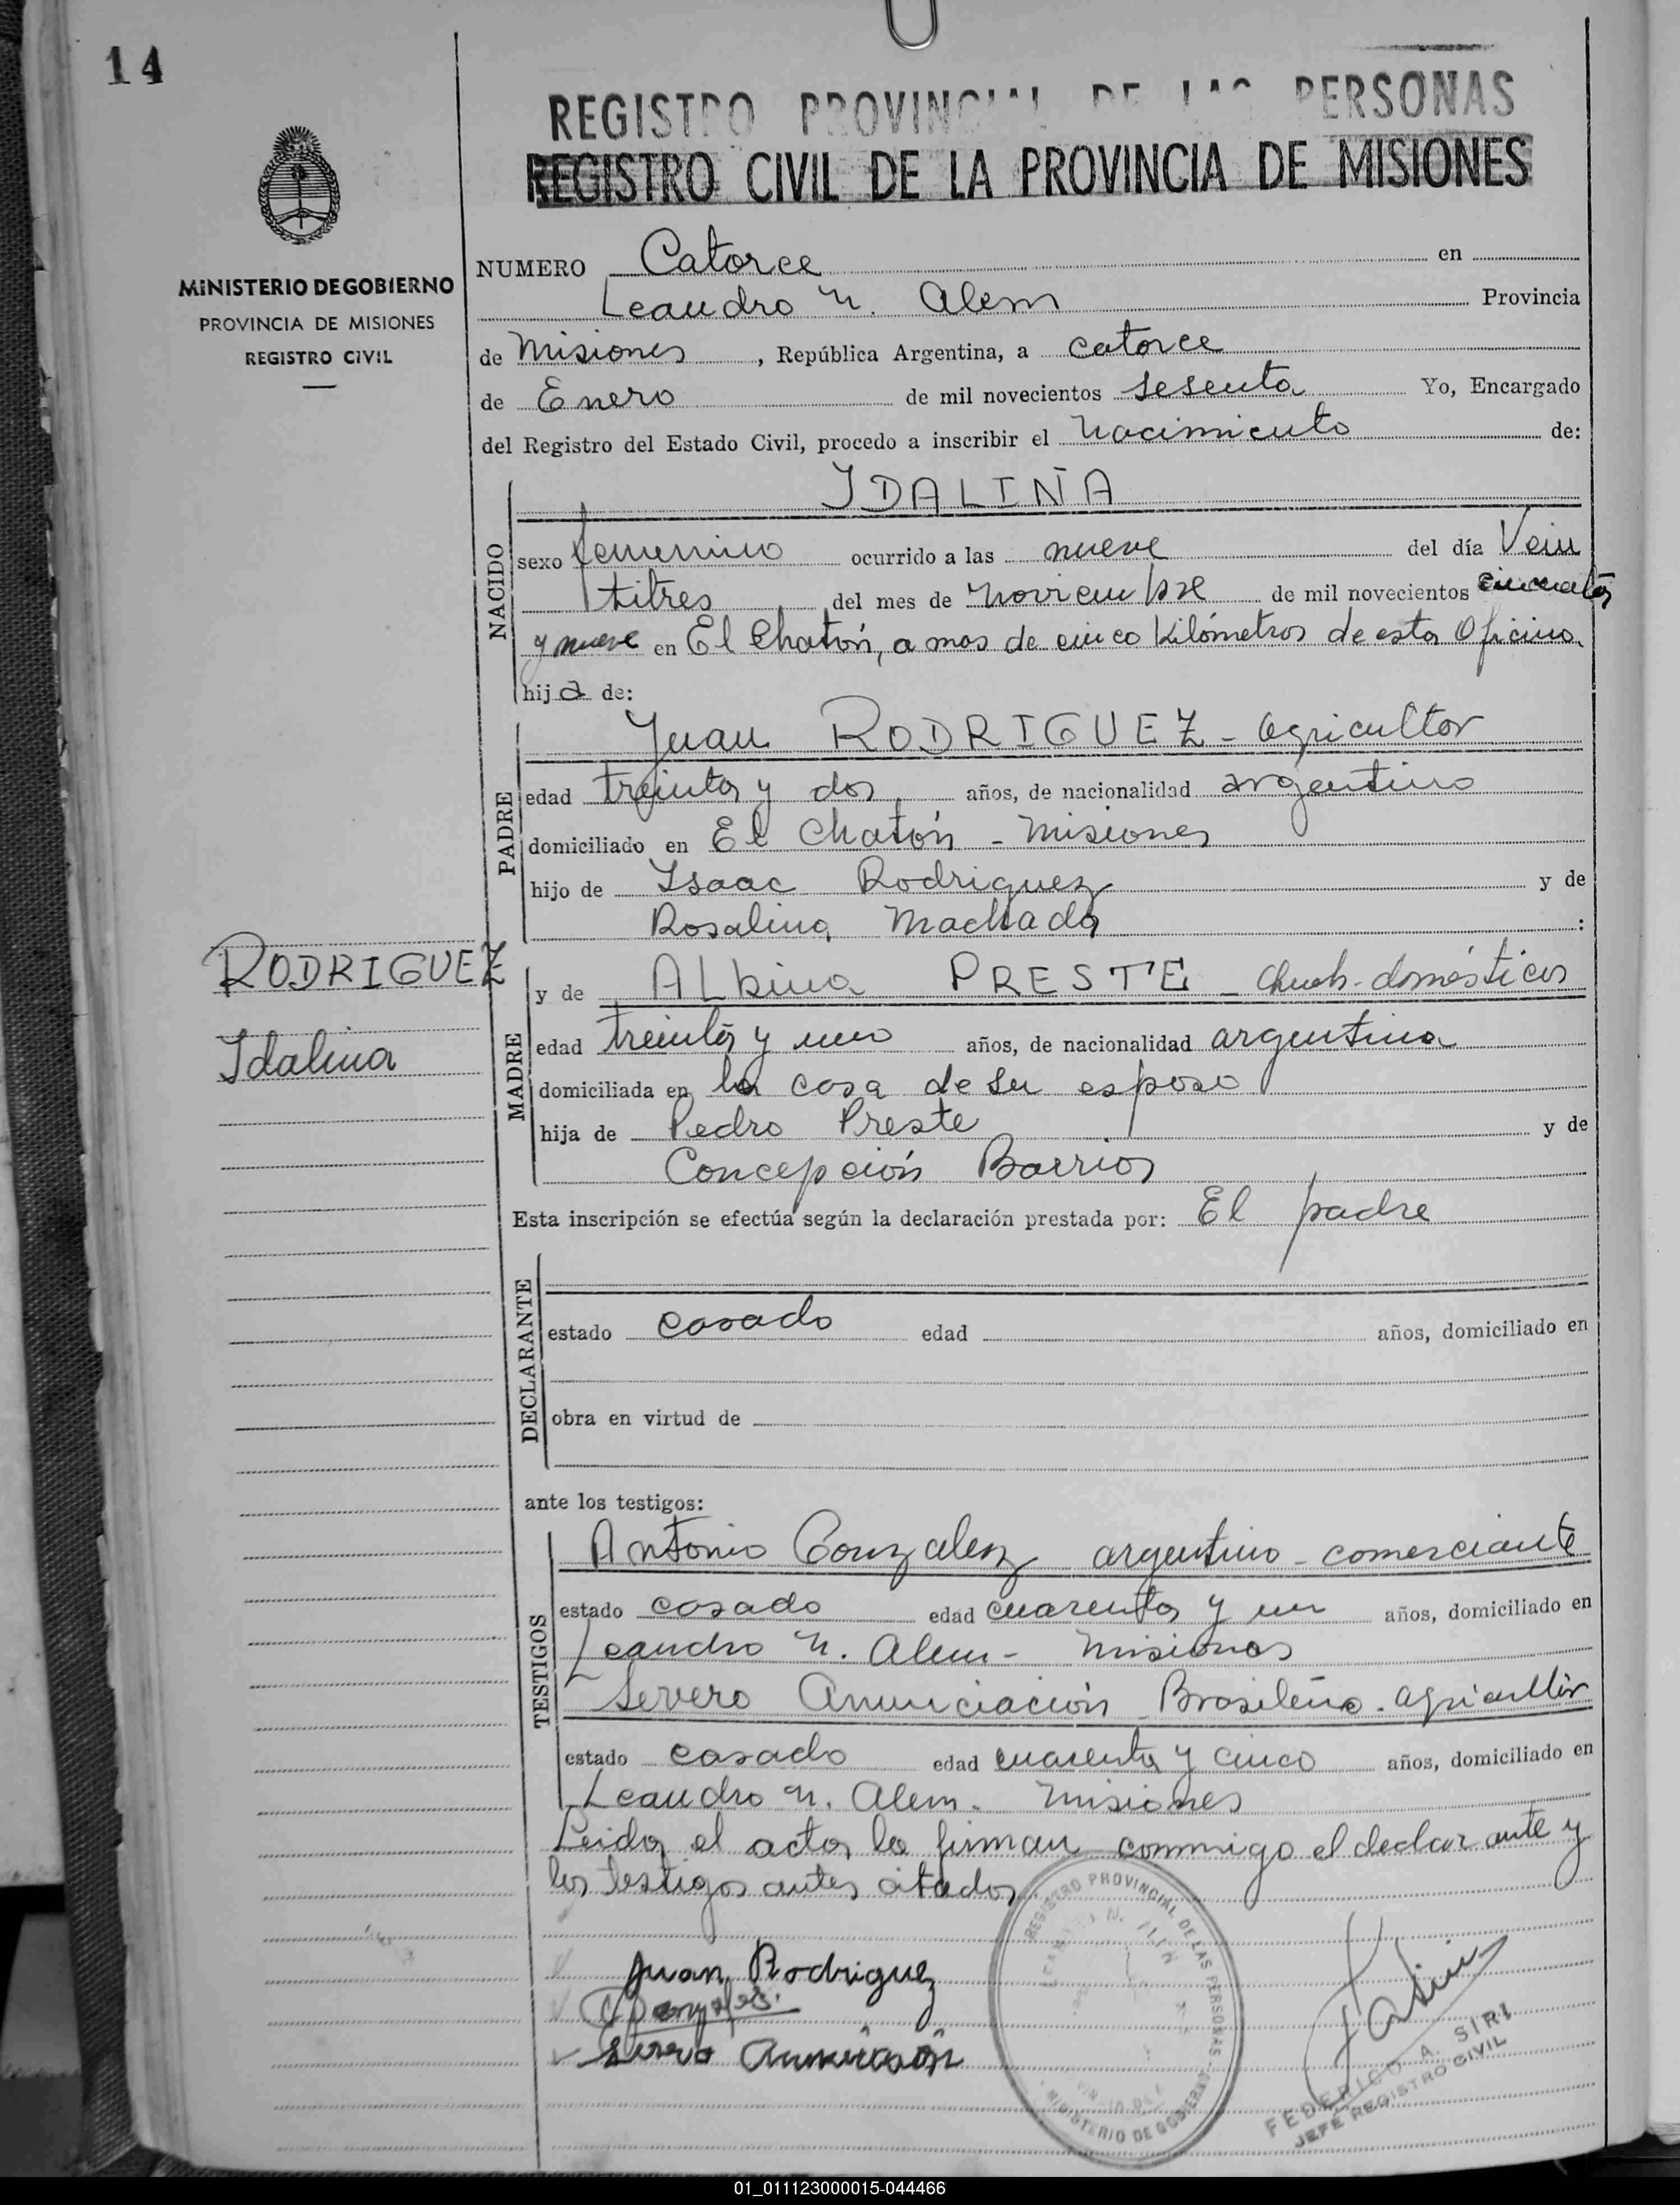 14
REGISTRO PROVINCIAL DE LAS PERSONAS
REGISTRO CIVIL DE LA PROVINCIA DE MISIONES
MINISTERIO DE GOBIERNO
PROVINCIA DE MISIONES
REGISTRO CIVIL
NUMERO Catorce en
Leandro N. Alem Provincia
de Misiones, República Argentina, a catorce
de Enero de mil novecientos sesenta Yo, Encargado
del Registro del Estado Civil, procedo a inscribir el Nacimiento de:
IDALINA
NACIDO
sexo femenino ocurrido a las nueve del día Vein
titres del mes de Noviembre de mil novecientos cincuenta
y nueve en El Chatón, a mas de cinco Kilómetros de esta Oficina
hija de:
PADRE
Juan RODRIGUEZ - agricultor
edad treinta y dos años, de nacionalidad argentino
domiciliado en El Chatón - Misiones
hijo de Isaac Rodriguez y de
Rosalina Machado :
RODRIGUEZ
Idalina
MADRE
y de Albina PRESTE - domésticos
edad treinta y uno años, de nacionalidad argentina
domiciliada en la casa de su esposo
hija de Pedro Preste y de
Concepción Barrios
Esta inscripción se efectúa según la declaración prestada por: El padre
DECLARANTE
estado casado edad años, domiciliado en
obra en virtud de
ante los testigos:
TESTIGOS
Antonio Gonzalez argentino - comerciante
estado casado edad cuarenta y un años, domiciliado en
Leandro N. Alem - Misiones
Severo Anunciación - Brasileño - agricultor
estado casado edad cuarenta y cinco años, domiciliado en
Leandro N. Alem - Misiones
Leida el acta la firman conmigo el declarante y
los testigos antes citados.
Juan Rodriguez
Severo Anunciación
REGISTRO PROVINCIAL DE LAS PERSONAS
LEANDRO N. ALEM
MINISTERIO DE GOBIERNO
FEDERICO A. SIRI
JEFE REGISTRO CIVIL
01_011123000015-044466